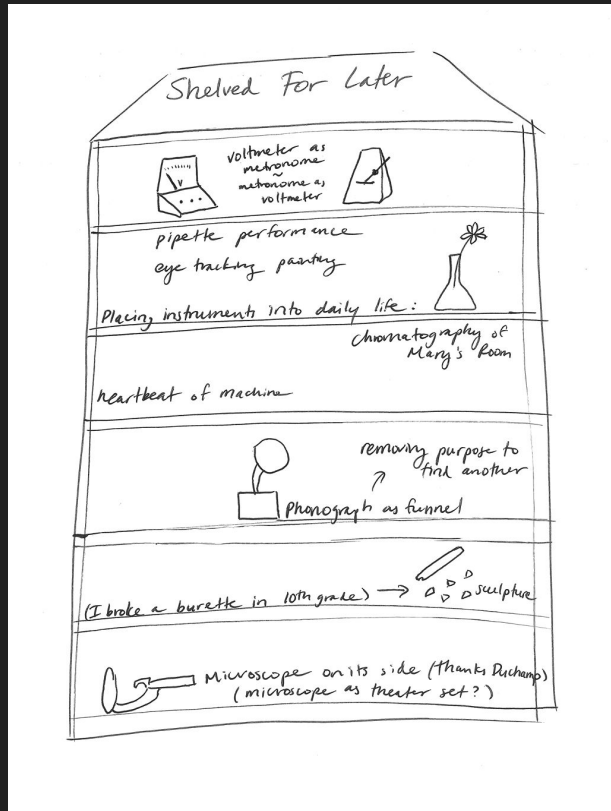 Shelved For Later
voltmeter as
metronome
~
metronome as
voltmeter
V
pipette performance
eye tracking painting
Placing instruments into daily life:
chromatography of
Mary's Room
heartbeat of machine
removing purpose to
find another
Phonograph as funnel
(I broke a burette in 10th grade) → sculpture
Microscope on its side (thanks Duchamp)
(microscope as theater set?)